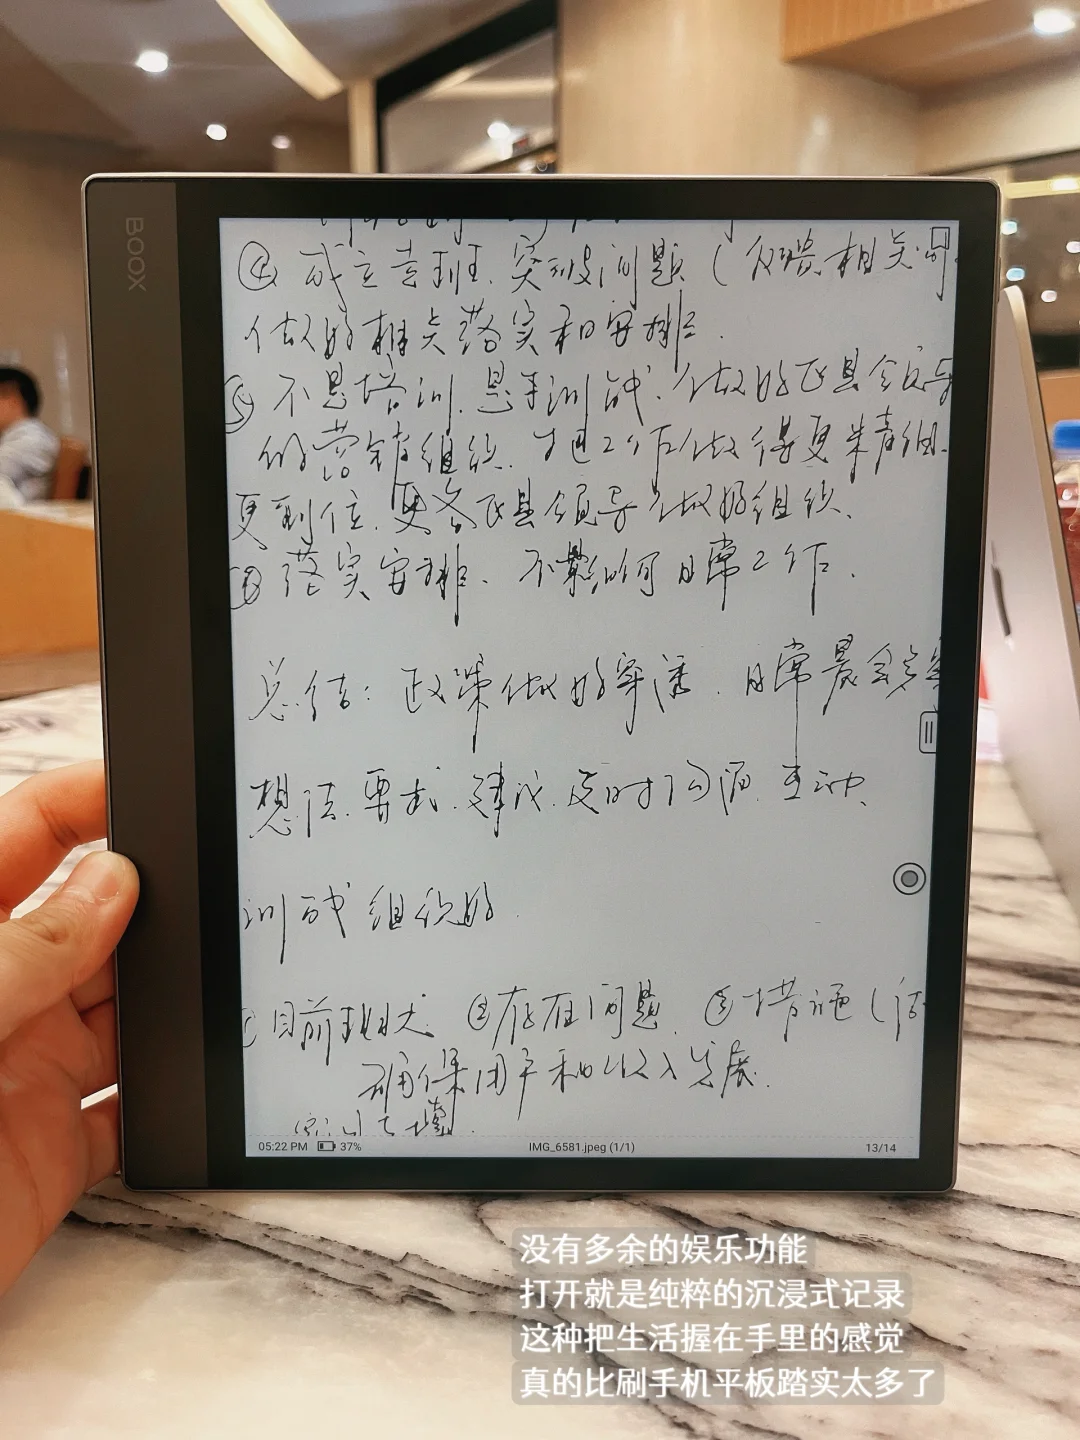 BOOX
④ 成立专班、突破问题（ 相关问
做好相关落实和安排.
⑤ 不是培训、是训战、做好区县领导
的营销组织、把工作做得更精细、
更到位、更多区县领导做好组织、
⑥ 落实安排、不影响日常工作.
总结: 政策做好穿透、日常晨会
想法、要求、建议、及时沟通、互动、
训战组织好
① 目前现状 ②存在问题、 ③措施（
确保用户和收入发展.
05:22 PM 37% IMG_6581.jpeg (1/1) 13/14
没有多余的娱乐功能
打开就是纯粹的沉浸式记录
这种把生活握在手里的感觉
真的比刷手机平板踏实太多了